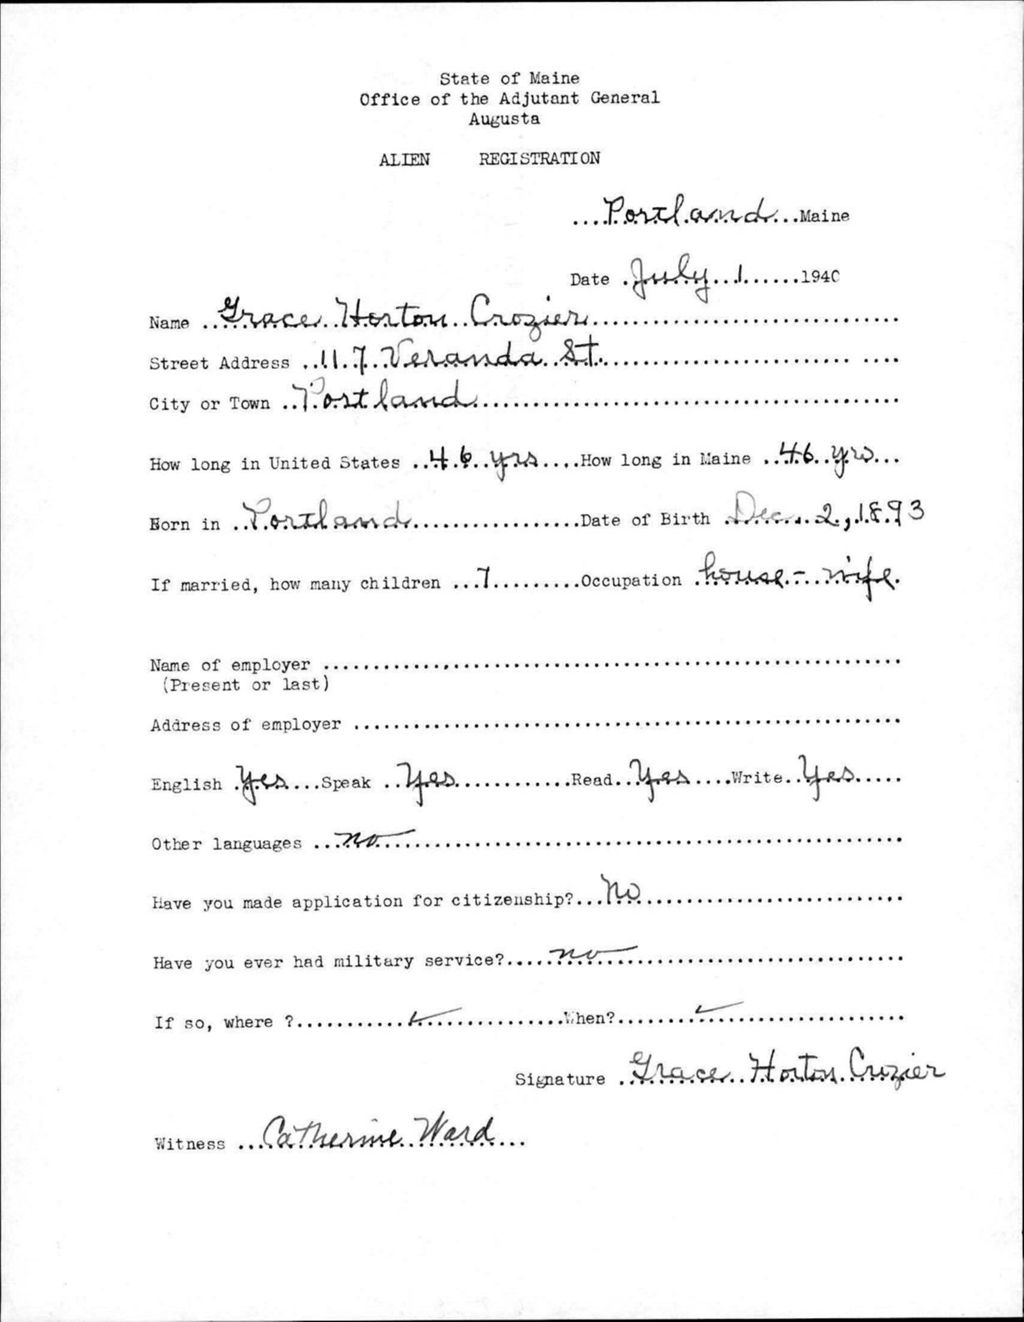 State of Maine
Office of the Adjutant General
Augusta
ALIEN REGISTRATION
....Portland...Maine
Date .July...1......1940
Name ..Grace Horton Crozier..............................
Street Address ..117 Veranda St......................... ....
City or Town ..Portland...........................................
How long in United States ..46 yrs.....How long in Maine ..46 yrs...
Born in ..Portland.................Date of Birth .Dec. 2, 1893
If married, how many children ...7.........Occupation .house-wife.
Name of employer ..........................................................
(Present or last)
Address of employer .......................................................
English .Yes....Speak ..Yes............Read..Yes....Write..Yes.....
Other languages ...no.................................................
Have you made application for citizenship?...No..........................
Have you ever had military service?.....no..............................
If so, where ?..........................When?.............................
Signature ..Grace Horton Crozier
Witness ...Catherine Ward...